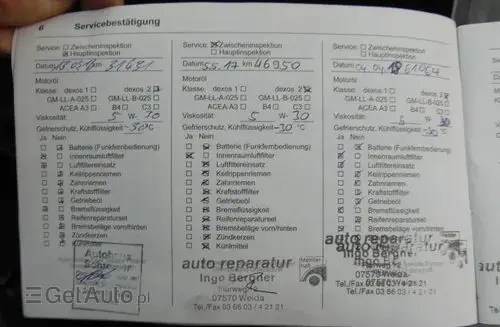 6 Servicebestätigung
Service: Zwischeninspektion
Hauptinspektion
Datum km 31431
Motoröl
Klasse: dexos 1 dexos 2
GM-LL-A-025 GM-LL-B-025
ACEA A3 B4 C3
Viskosität: 5 W- 30
Gefrierschutz, Kühlflüssigkeit -30°C
Ja Nein
Batterie (Funkfernbedienung)
Innenraumluftfilter
Luftfiltereinsatz
Keilrippenriemen
Zahnriemen
Kraftstofffilter
Getriebeöl
Bremsflüssigkeit
Reifenreparaturset
Bremsbeläge vorn/hinten
Zündkerzen
Kühlmittel
Autohaus
Service: Zwischeninspektion
Hauptinspektion
Datum km 46950
Motoröl
Klasse: dexos 1 dexos 2
GM-LL-A-025 GM-LL-B-025
ACEA A3 B4 C3
Viskosität: 5 W- 30
Gefrierschutz, Kühlflüssigkeit -30°C
Ja Nein
Batterie (Funkfernbedienung)
Innenraumluftfilter
Luftfiltereinsatz
Keilrippenriemen
Zahnriemen
Kraftstofffilter
Getriebeöl
Bremsflüssigkeit
Reifenreparaturset
Bremsbeläge vorn/hinten
Zündkerzen
Kühlmittel
auto reparatur
Ingo Bergner
07570 Weida
Tel./Fax 03 66 03 / 4 21 21
Service: Zwischeninspektion
Hauptinspektion
Datum km
Motoröl
Klasse: dexos 1 dexos 2
GM-LL-A-025 GM-LL-B-025
ACEA A3 B4 C3
Viskosität: 5 W- 30
Gefrierschutz, Kühlflüssigkeit -30°C
Ja Nein
Batterie (Funkfernbedienung)
Innenraumluftfilter
Luftfiltereinsatz
Keilrippenriemen
Zahnriemen
Kraftstofffilter
Getriebeöl
Bremsflüssigkeit
Reifenreparaturset
Bremsbeläge vorn/hinten
Zündkerzen
Kühlmittel
auto reparatur
Ingo
Tel./Fax 03 66 03 / 4 21 21
GetAuto.pl